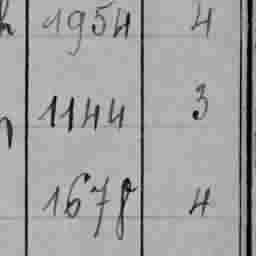 1954 4
1144 3
1678 4